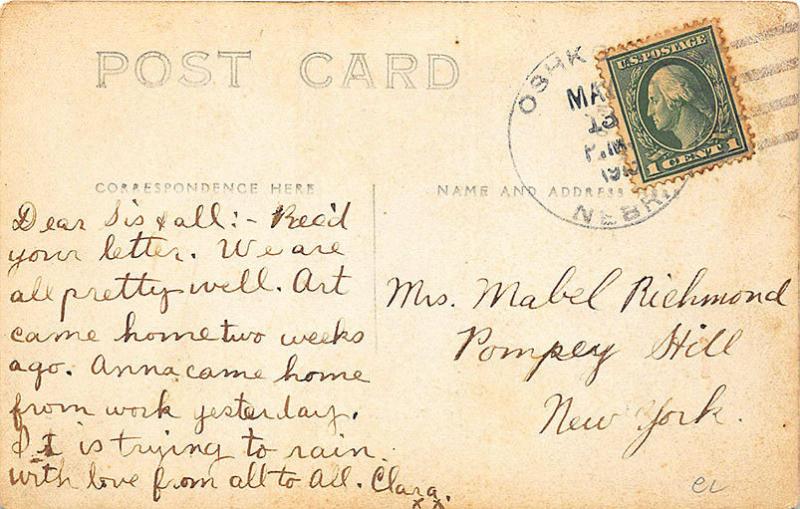 POST CARD
OSHK
MA
13
P.M.
NEBR
U.S. POSTAGE
1 CENT 1
CORRESPONDENCE HERE
NAME AND ADDRESS
Dear Sis & all:- Rec'd
your letter. We are
all pretty well. Art
came home two weeks
ago. Anna came home
from work yesterday.
It is trying to rain.
with love from all to All. Clara.
x x
Mrs. Mabel Richmond
Pompey Hill
New York.